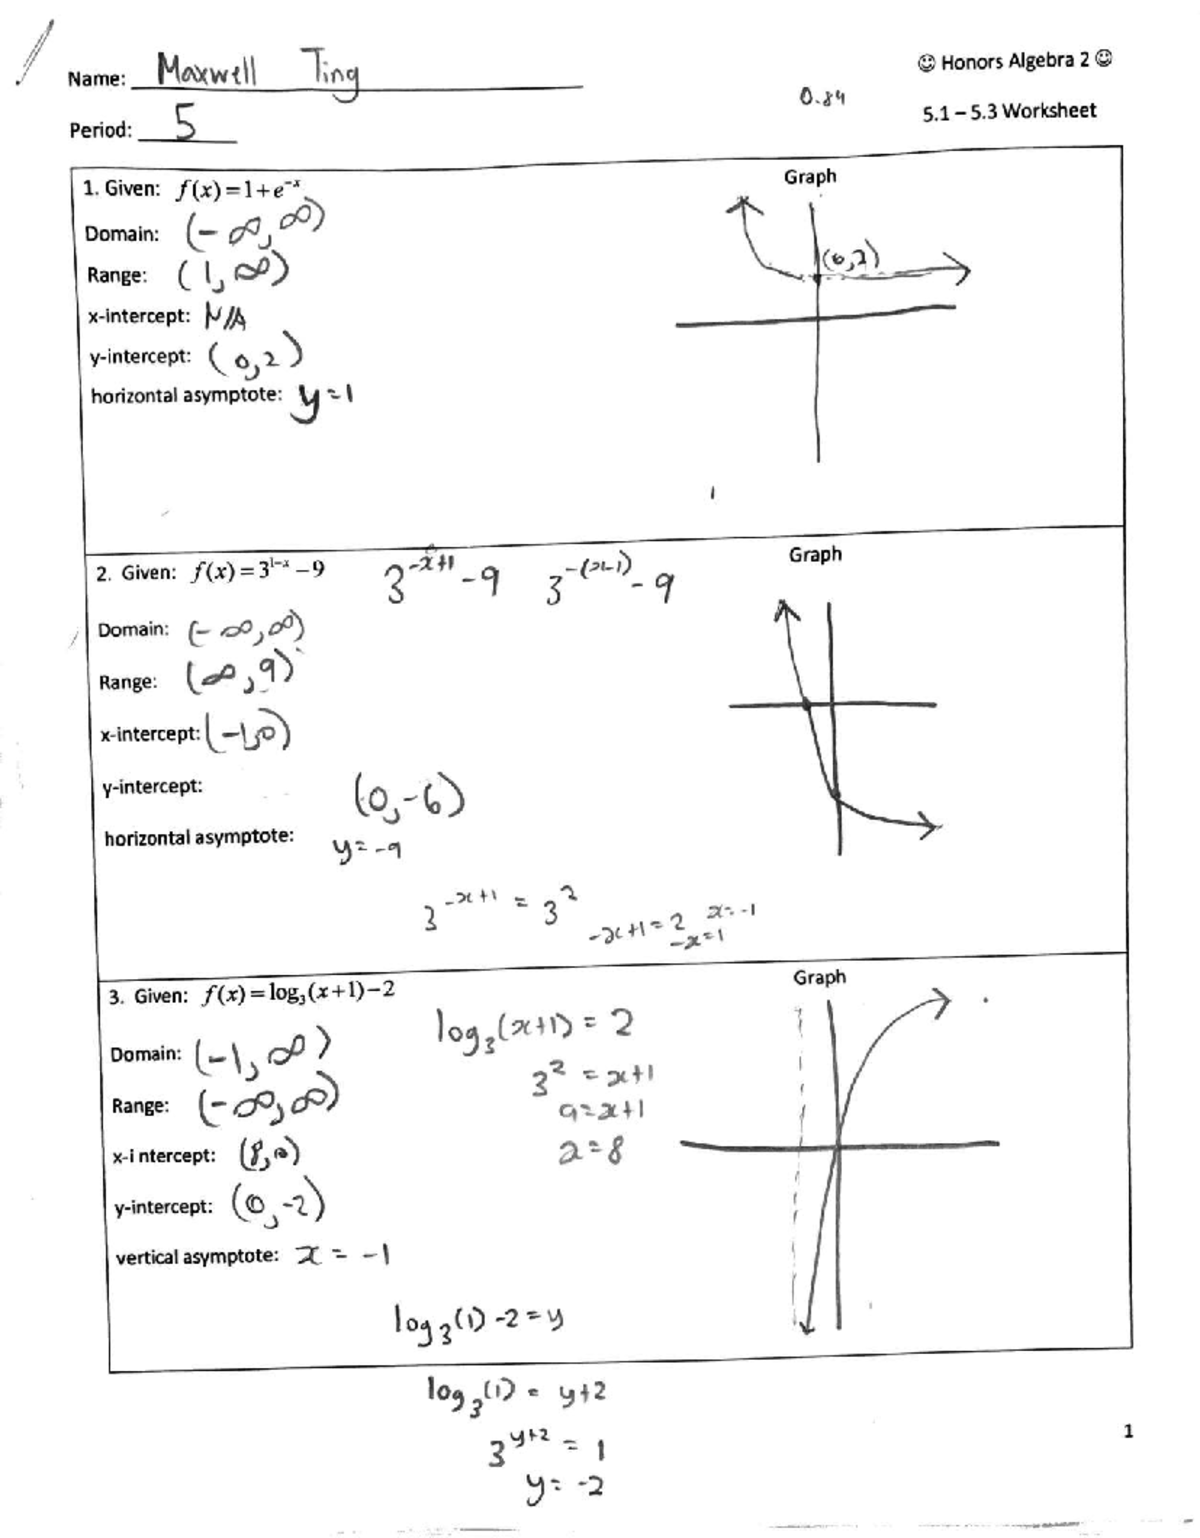 Name: Maxwell Ting
☺ Honors Algebra 2 ☺
0.84
Period: 5
5.1 – 5.3 Worksheet
1. Given: f(x)=1+e^-x
Graph
Domain: (-∞,∞)
Range: (1,∞)
(0,2)
x-intercept: N/A
y-intercept: (0,2)
horizontal asymptote: y=1
2. Given: f(x)=3^1-x −9
3^-x+1 -9
3^-(x-1) -9
Graph
Domain: (-∞,∞)
Range: (∞,9)
x-intercept: (-1,0)
y-intercept: (0,-6)
horizontal asymptote: y=-9
3^-x+1 = 3^2
-x+1=2
x=-1
-x=1
3. Given: f(x)=log₃(x+1)−2
Graph
log₃(x+1) = 2
Domain: (-1,∞)
3^2 = x+1
Range: (-∞,∞)
9=x+1
x-i ntercept: (8,0)
x=8
y-intercept: (0,-2)
vertical asymptote: x = -1
log₃(1) -2=y
log₃(1) = y+2
3^y+2 = 1
y= -2
1